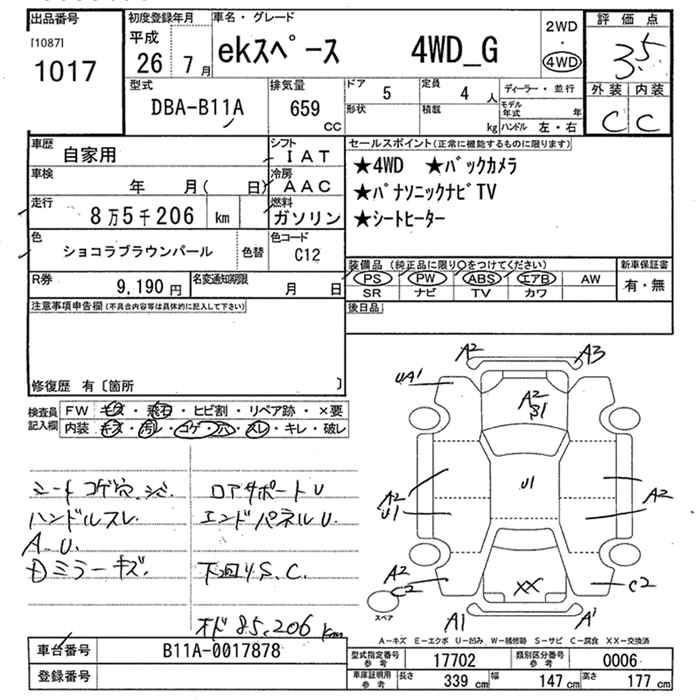 出品番号 初度登録年月 車名・グレード 評価点
[1087] 平成 2WD
1017 26 7月 ekスペース 4WD_G ・ 3.5
4WD
型式 排気量 ドア 5 定員 4 人 ディーラー・並行 外装 内装
DBA-B11A 659 cc 形状 積載 kg モデル年式 年 C C
ハンドル 左・右
車歴 自家用 シフト IAT セールスポイント(正常に機能するものに限ります)
車検 年 月( 日) 冷房 AAC ★4WD ★バックカメラ
走行 8万5千206 km 燃料 ガソリン ★パナソニックナビTV
★シートヒーター
色 ショコラブラウンパール 色替 色コード C12
装備品 (純正品に限り○をつけてください) 新車保証書
R券 9,190円 名変通知期限 月 日 PS PW ABS エアB AW 有・無
SR ナビ TV カワ
注意事項申告欄(不具合内容等は具体的に記入して下さい) 後日品
修復歴 有〔箇所 〕
検査員記入欄 FW キズ・飛石・ヒビ割・リペア跡・×要
内装 キズ・汚レ・コゲ・穴・スレ・キレ・破レ
シートコゲ穴、シミ. ロアサポートU
ハンドルスレ エンドパネルU.
A.U.
Dミラーキズ. 下回りS.C.
オド 85,206 km
A2 A3
UA1
A2
S1
U1
A2 A2
U1
A2 C2 XX C2
スペア A1 A1
A-キズ E-エクボ U-凹み W-補修跡 S-サビ C-腐食 XX-交換済
車台番号 B11A-0017878 型式指定番号 参考 17702 類別区分番号 参考 0006
登録番号 車庫証明用 参考 長さ 339 cm 幅 147 cm 高さ 177 cm